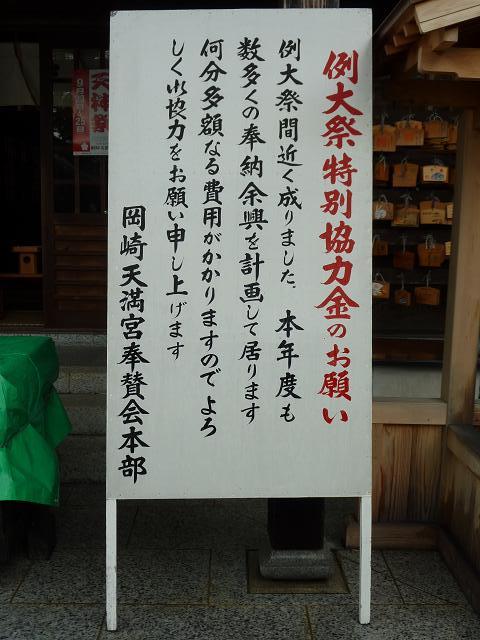 例大祭特別協力金のお願い
例大祭間近く成りました、本年度も
数多くの奉納余興を計画して居ります
何分多額なる費用がかかりますのでよろ
しく御協力をお願い申し上げます
岡崎天満宮奉賛会本部